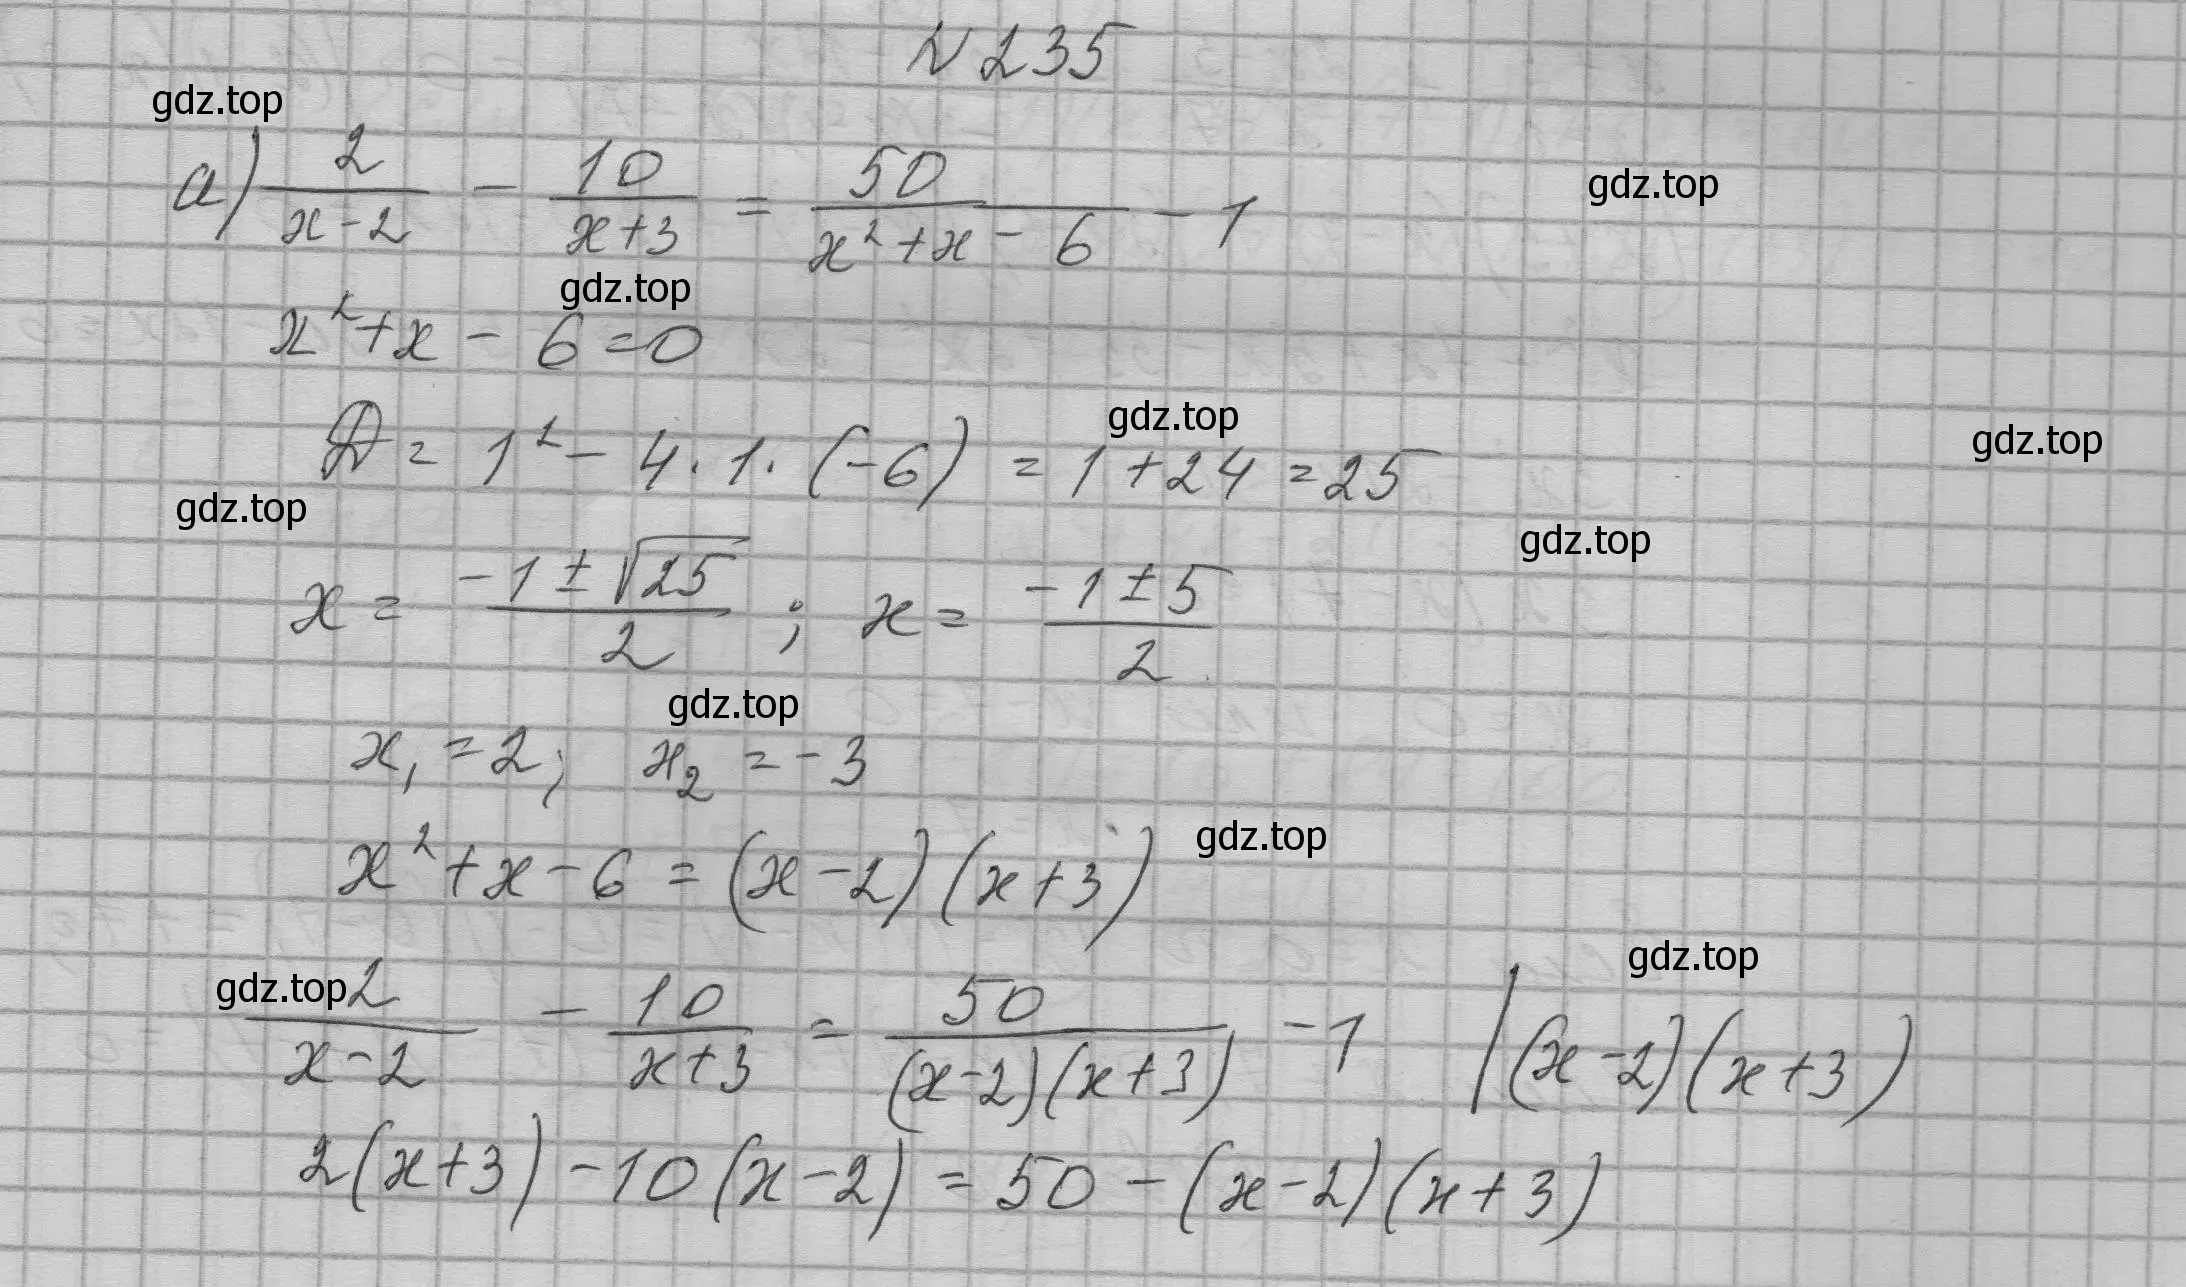 N 235
gdz.top
а) 2/(x-2) - 10/(x+3) = 50/(x²+x-6) - 1
gdz.top
gdz.top
x²+x-6=0
gdz.top
D = 1² - 4·1·(-6) = 1+24 = 25
gdz.top
gdz.top
gdz.top
x = (-1±√25)/2 ; x = (-1±5)/2
gdz.top
x₁ = 2; x₂ = -3
gdz.top
x²+x-6 = (x-2)(x+3)
gdz.top
gdz.top
2/(x-2) - 10/(x+3) = 50/((x-2)(x+3)) - 1 |(x-2)(x+3)
2(x+3)-10(x-2) = 50-(x-2)(x+3)